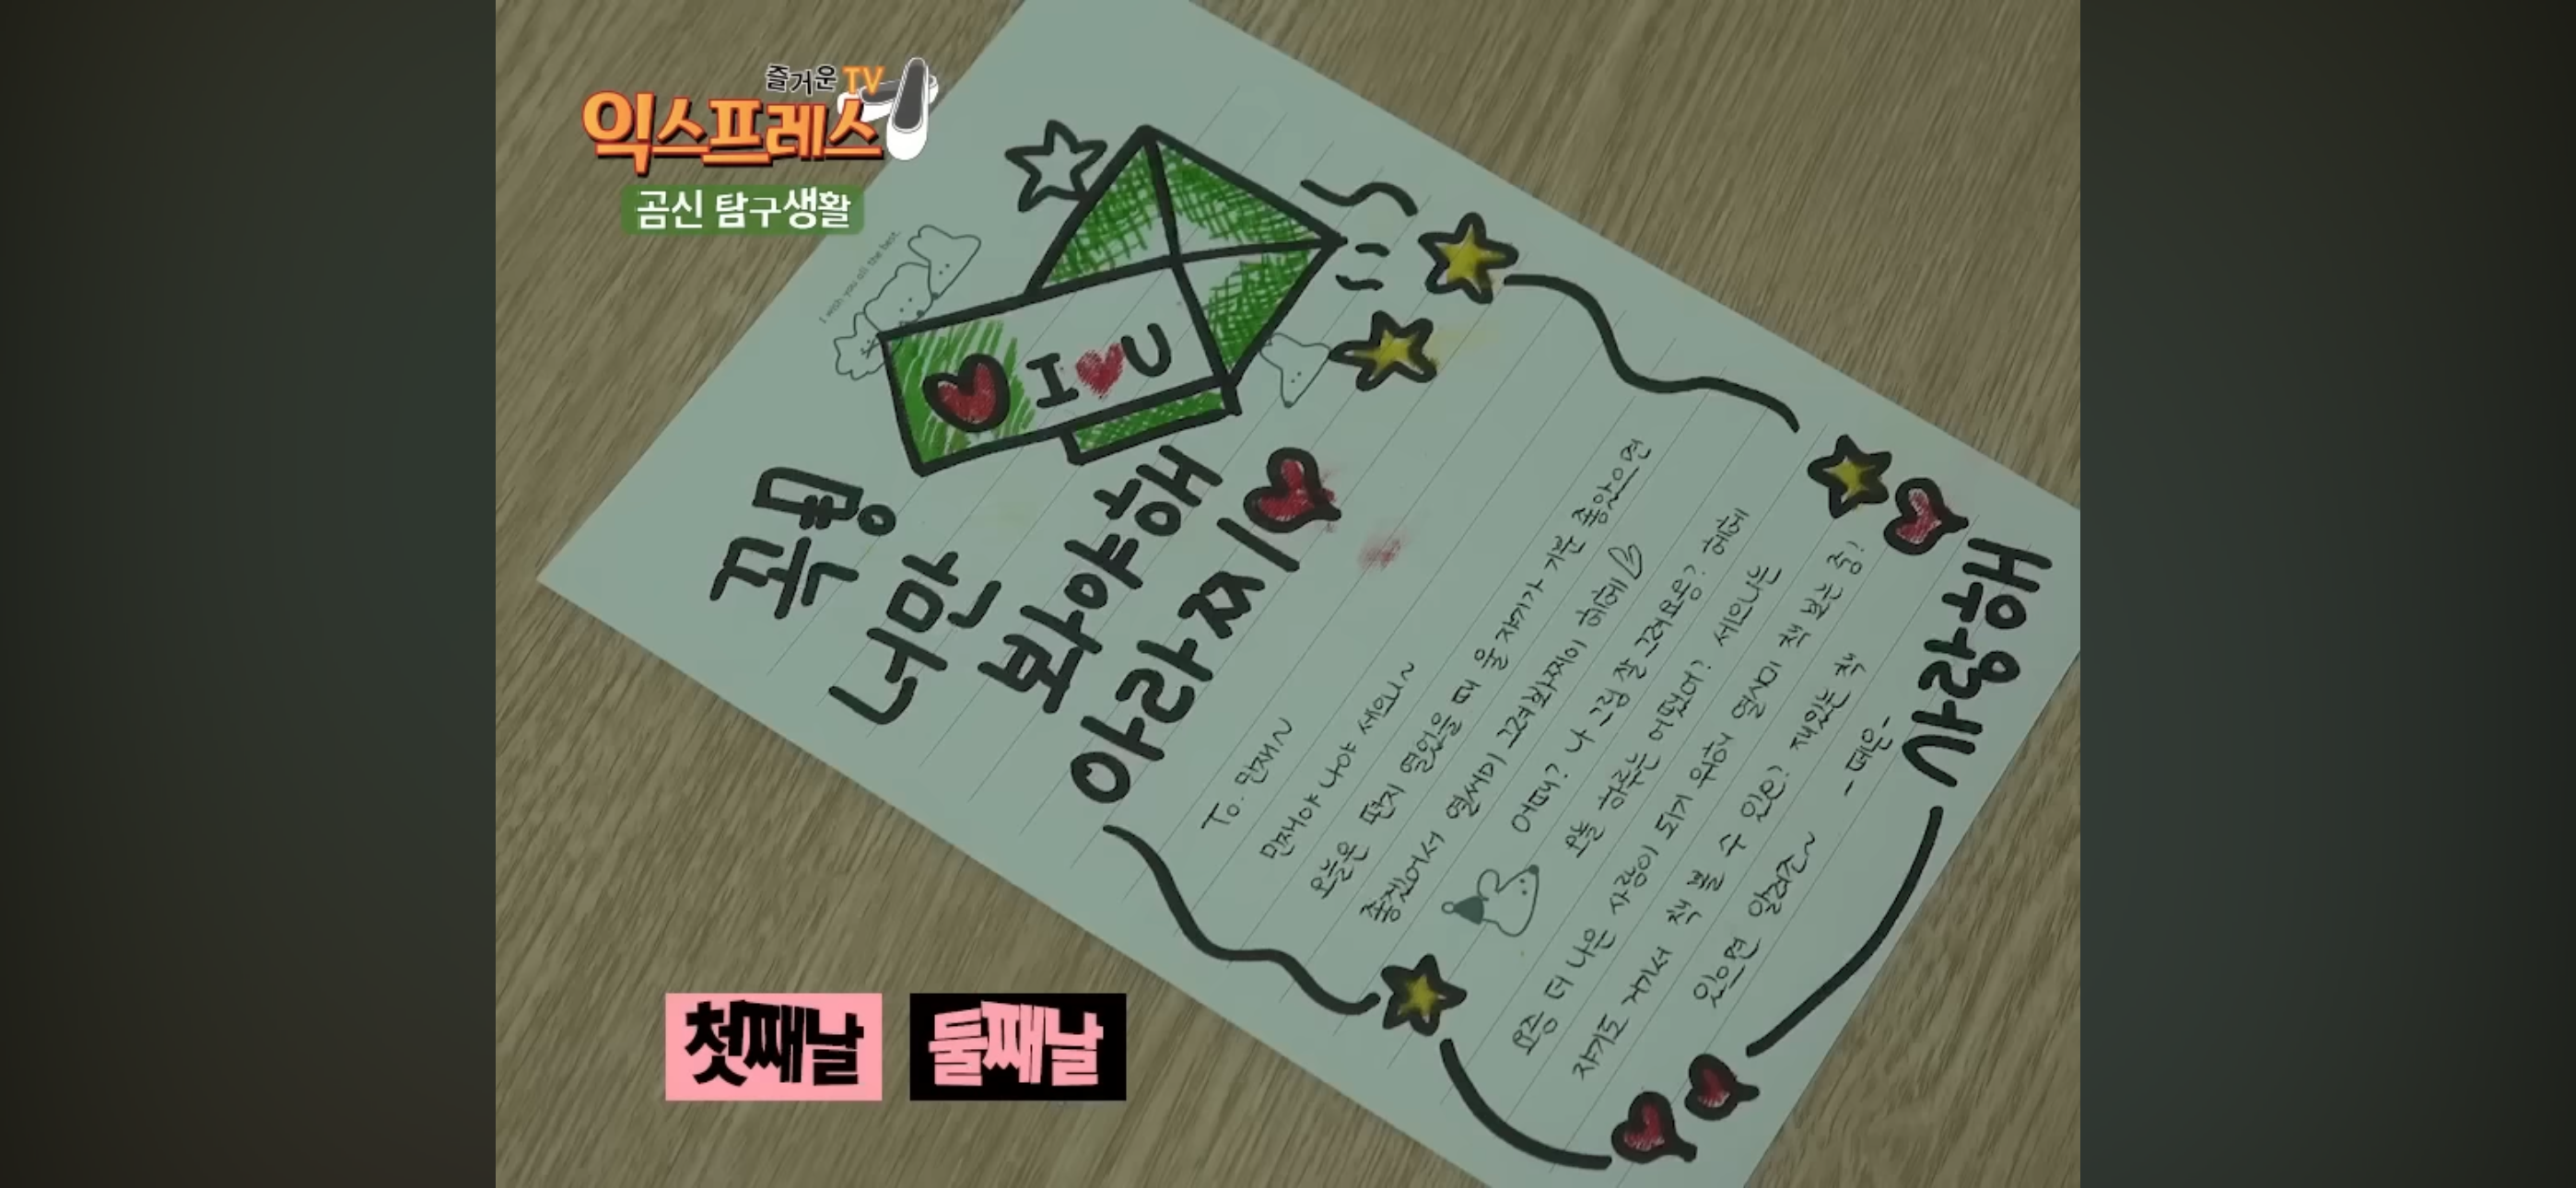 즐거운TV
익스프레스
곰신 탐구생활
I wish you all the best.
I♥U
꼭
너만
봐야해
아라찌
To. 만재~
만재야 나야 세의니~
오늘은 편지 열었을 때 울 쟈기가 기분 좋았으면
좋겠어서 열씨미 그려봐찌이 헤헤
어때? 나 그림 잘 그려요옹? 헤헤
오늘 하루는 어땠어? 세으니는
요즘 더 나은 사람이 되기 위해 열시미 책 보는 중!
쟈기도 거기서 책 볼 수 있오? 재밌는 책
있으면 알려죠~
사랑해
첫째날
둘째날